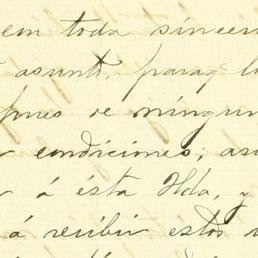 en toda sincer
asunt. paraq. l
pues de ningun
condiciones; as
á ésta Hda, y
á recibir estos